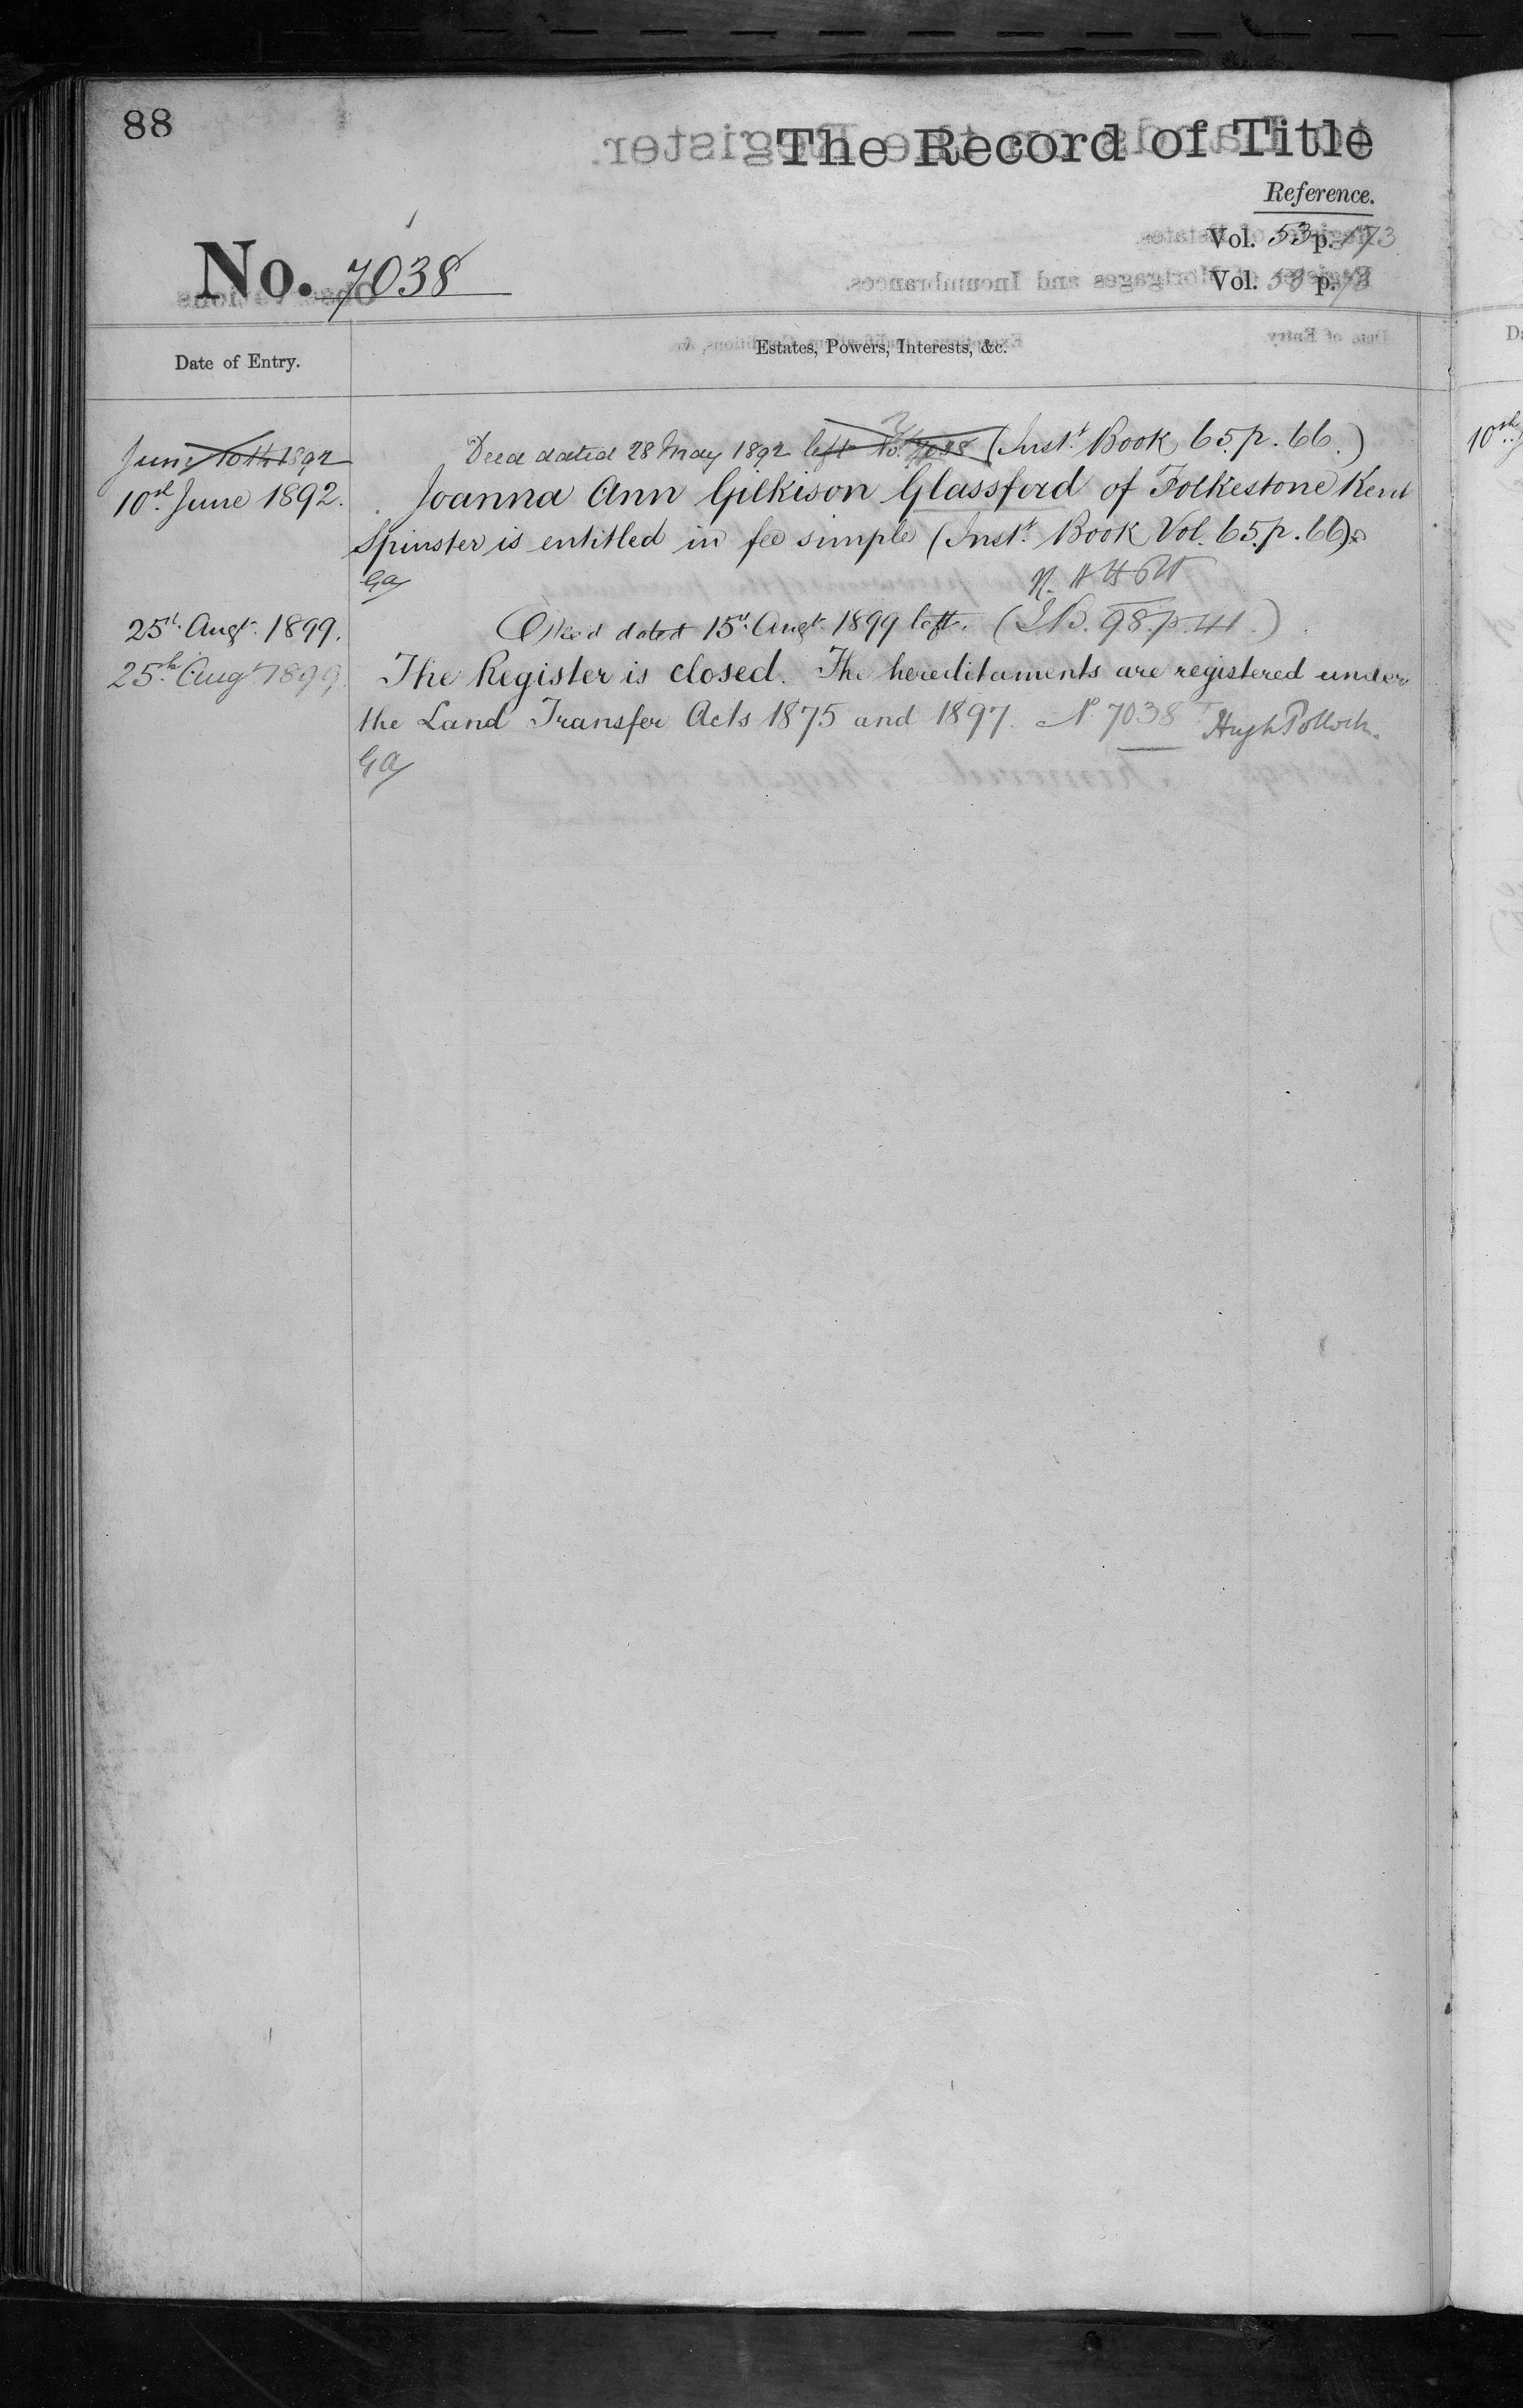 88
The Record of Title
Reference.
Vol. 53 p. 173
No. 7038
Vol. 58 p. 73
Date of Entry.
Estates, Powers, Interests, &c.
June 10th 1892
Deed dated 28 May 1892 left No. 7038 (Inst.t Book 65. p. 66.)
10th June 1892.
Joanna Ann Gilkison Glassford of Folkestone Kent
Spinster is entitled in fee simple (Inst.t Book Vol. 65. p. 66)
25th Augt. 1899.
Deed dated 15th Augt. 1899 left. (I.B. 98. p. 41.)
25th Augt 1899.
The Register is closed. The hereditaments are registered under
the Land Transfer Acts 1875 and 1897. No 7038 Hugh Pollock.
10th